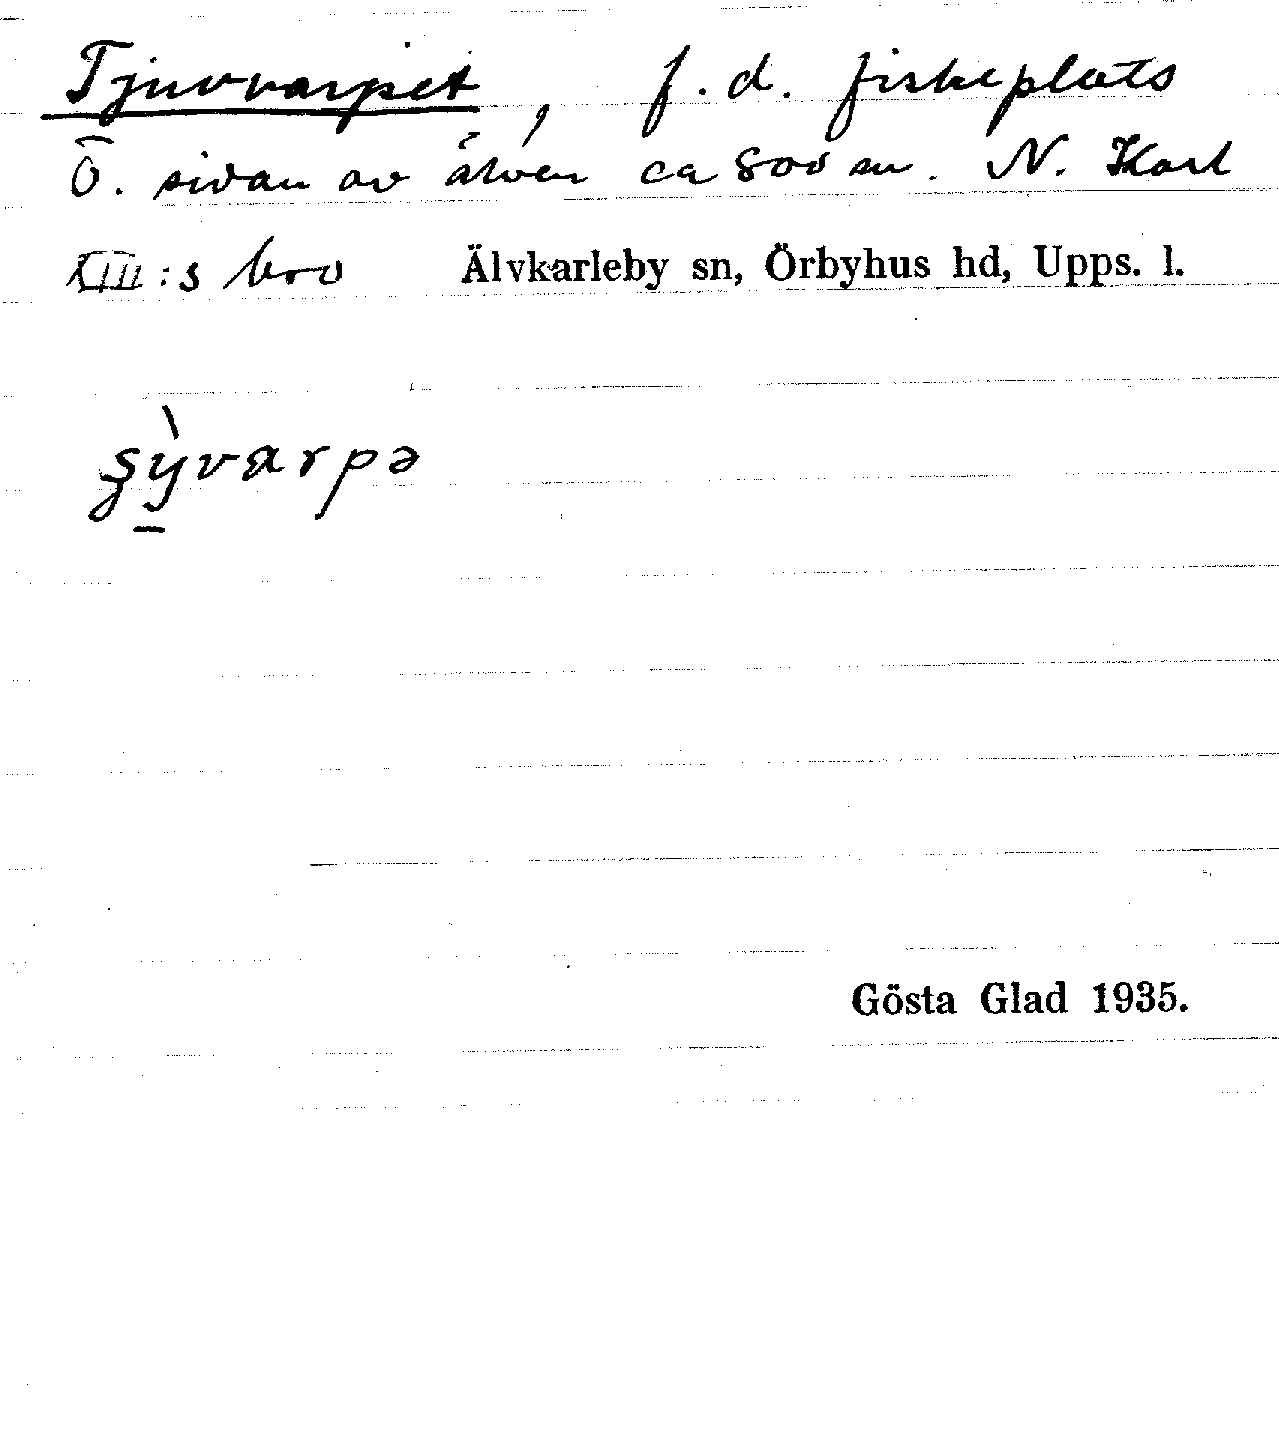 Tjuvvarpet, f.d. fiskeplats
Ö. sidan av älven ca 800 m. N. Karl
XIII:s bro Älvkarleby sn, Örbyhus hd, Upps. l.
ʂỳvarpə
Gösta Glad 1935.